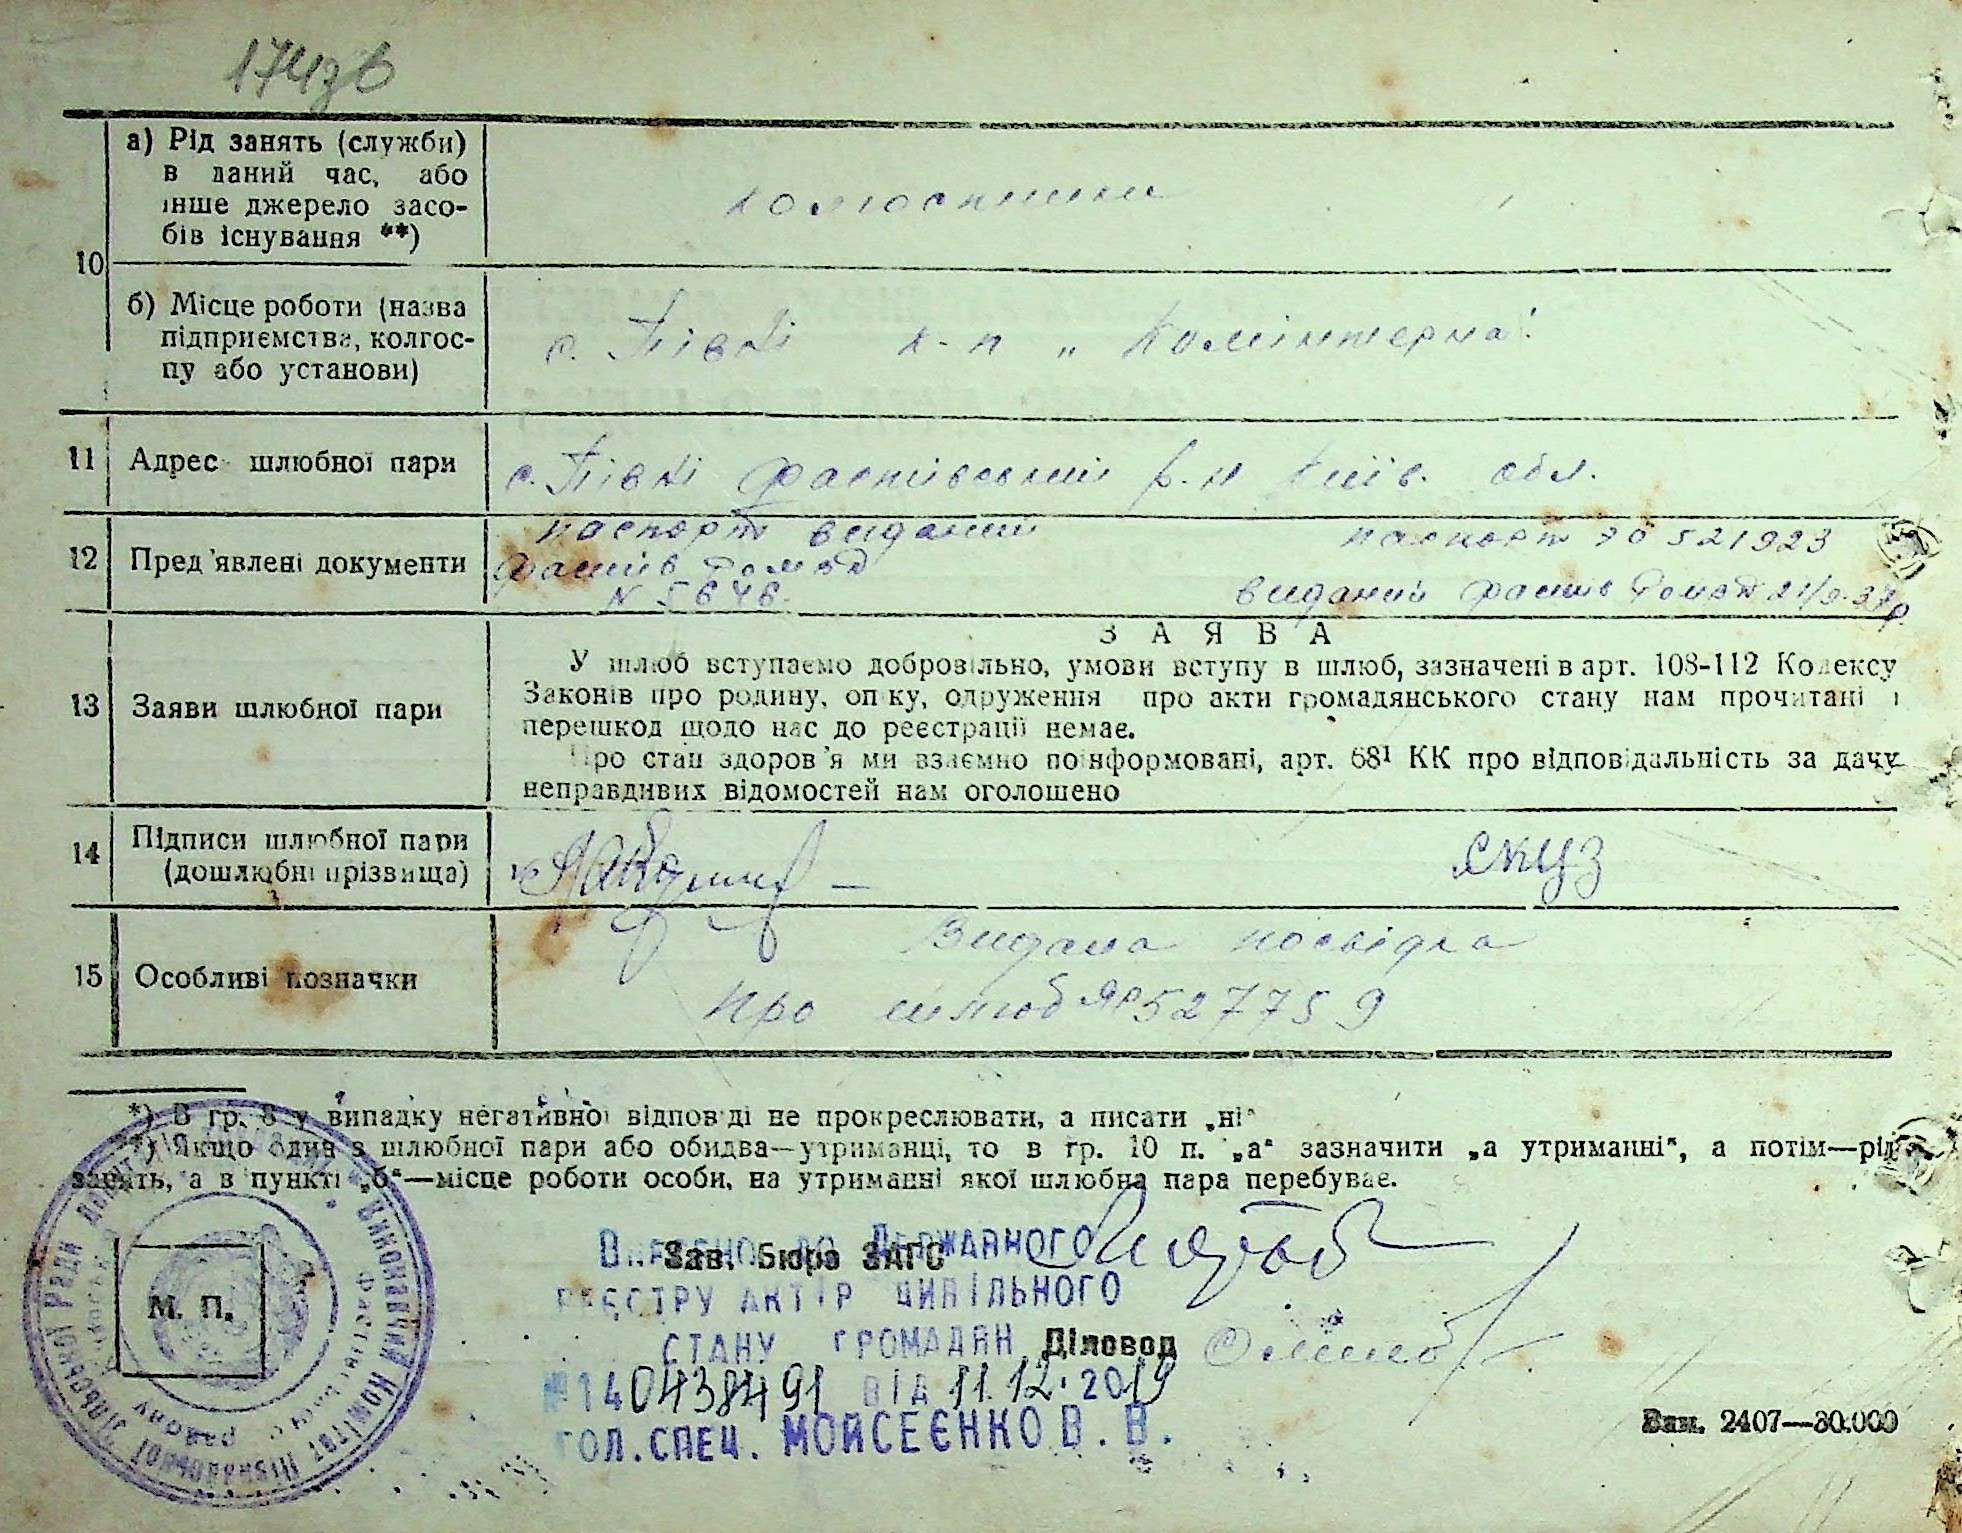 174зв
а) Рід занять (служби)
в даний час, або
інше джерело засо-
бів існування **)
колгоспники
10
б) Місце роботи (назва
підприємства, колгос-
пу або установи)
с. Півні к-п „Комінтерна"
11 Адрес шлюбної пари
с. Півні Фастівський р-н Київ. обл.
12 Пред'явлені документи
паспорт виданий
Фастів
N 5646.
паспорт 521923
виданий Фастів
13 Заяви шлюбної пари
ЗАЯВА
У шлюб вступаємо добровільно, умови вступу в шлюб, зазначені в арт. 108-112 Кодексу
Законів про родину, опіку, одруження про акти громадянського стану нам прочитані і
перешкод щодо нас до реєстрації немає.
Про стан здоров'я ми взаємно поінформовані, арт. 68¹ КК про відповідальність за дачу
неправдивих відомостей нам оголошено
14 Підписи шлюбної пари
(дошлюбні прізвища)
15 Особливі позначки
Видана посвідка
про шлюб 527759
*) В гр. 8 у випадку негативної відповіді не прокреслювати, а писати „ні"
*) Якщо один з шлюбної пари або обидва—утриманці, то в гр. 10 п. „а" зазначити „а утриманні", а потім—рід
занять, а в пункті „б"—місце роботи особи, на утриманні якої шлюбна пара перебуває.
Зав. Бюро ЗАГС
Внесено до Державного
реєстру актів цивільного
стану громадян
Діловод
№ 1404384 91 від 11.12.2019
гол.спец. Мойсеєнко В. В.
М. П.
Виконавчий комітет
Зам. 2407—30.000